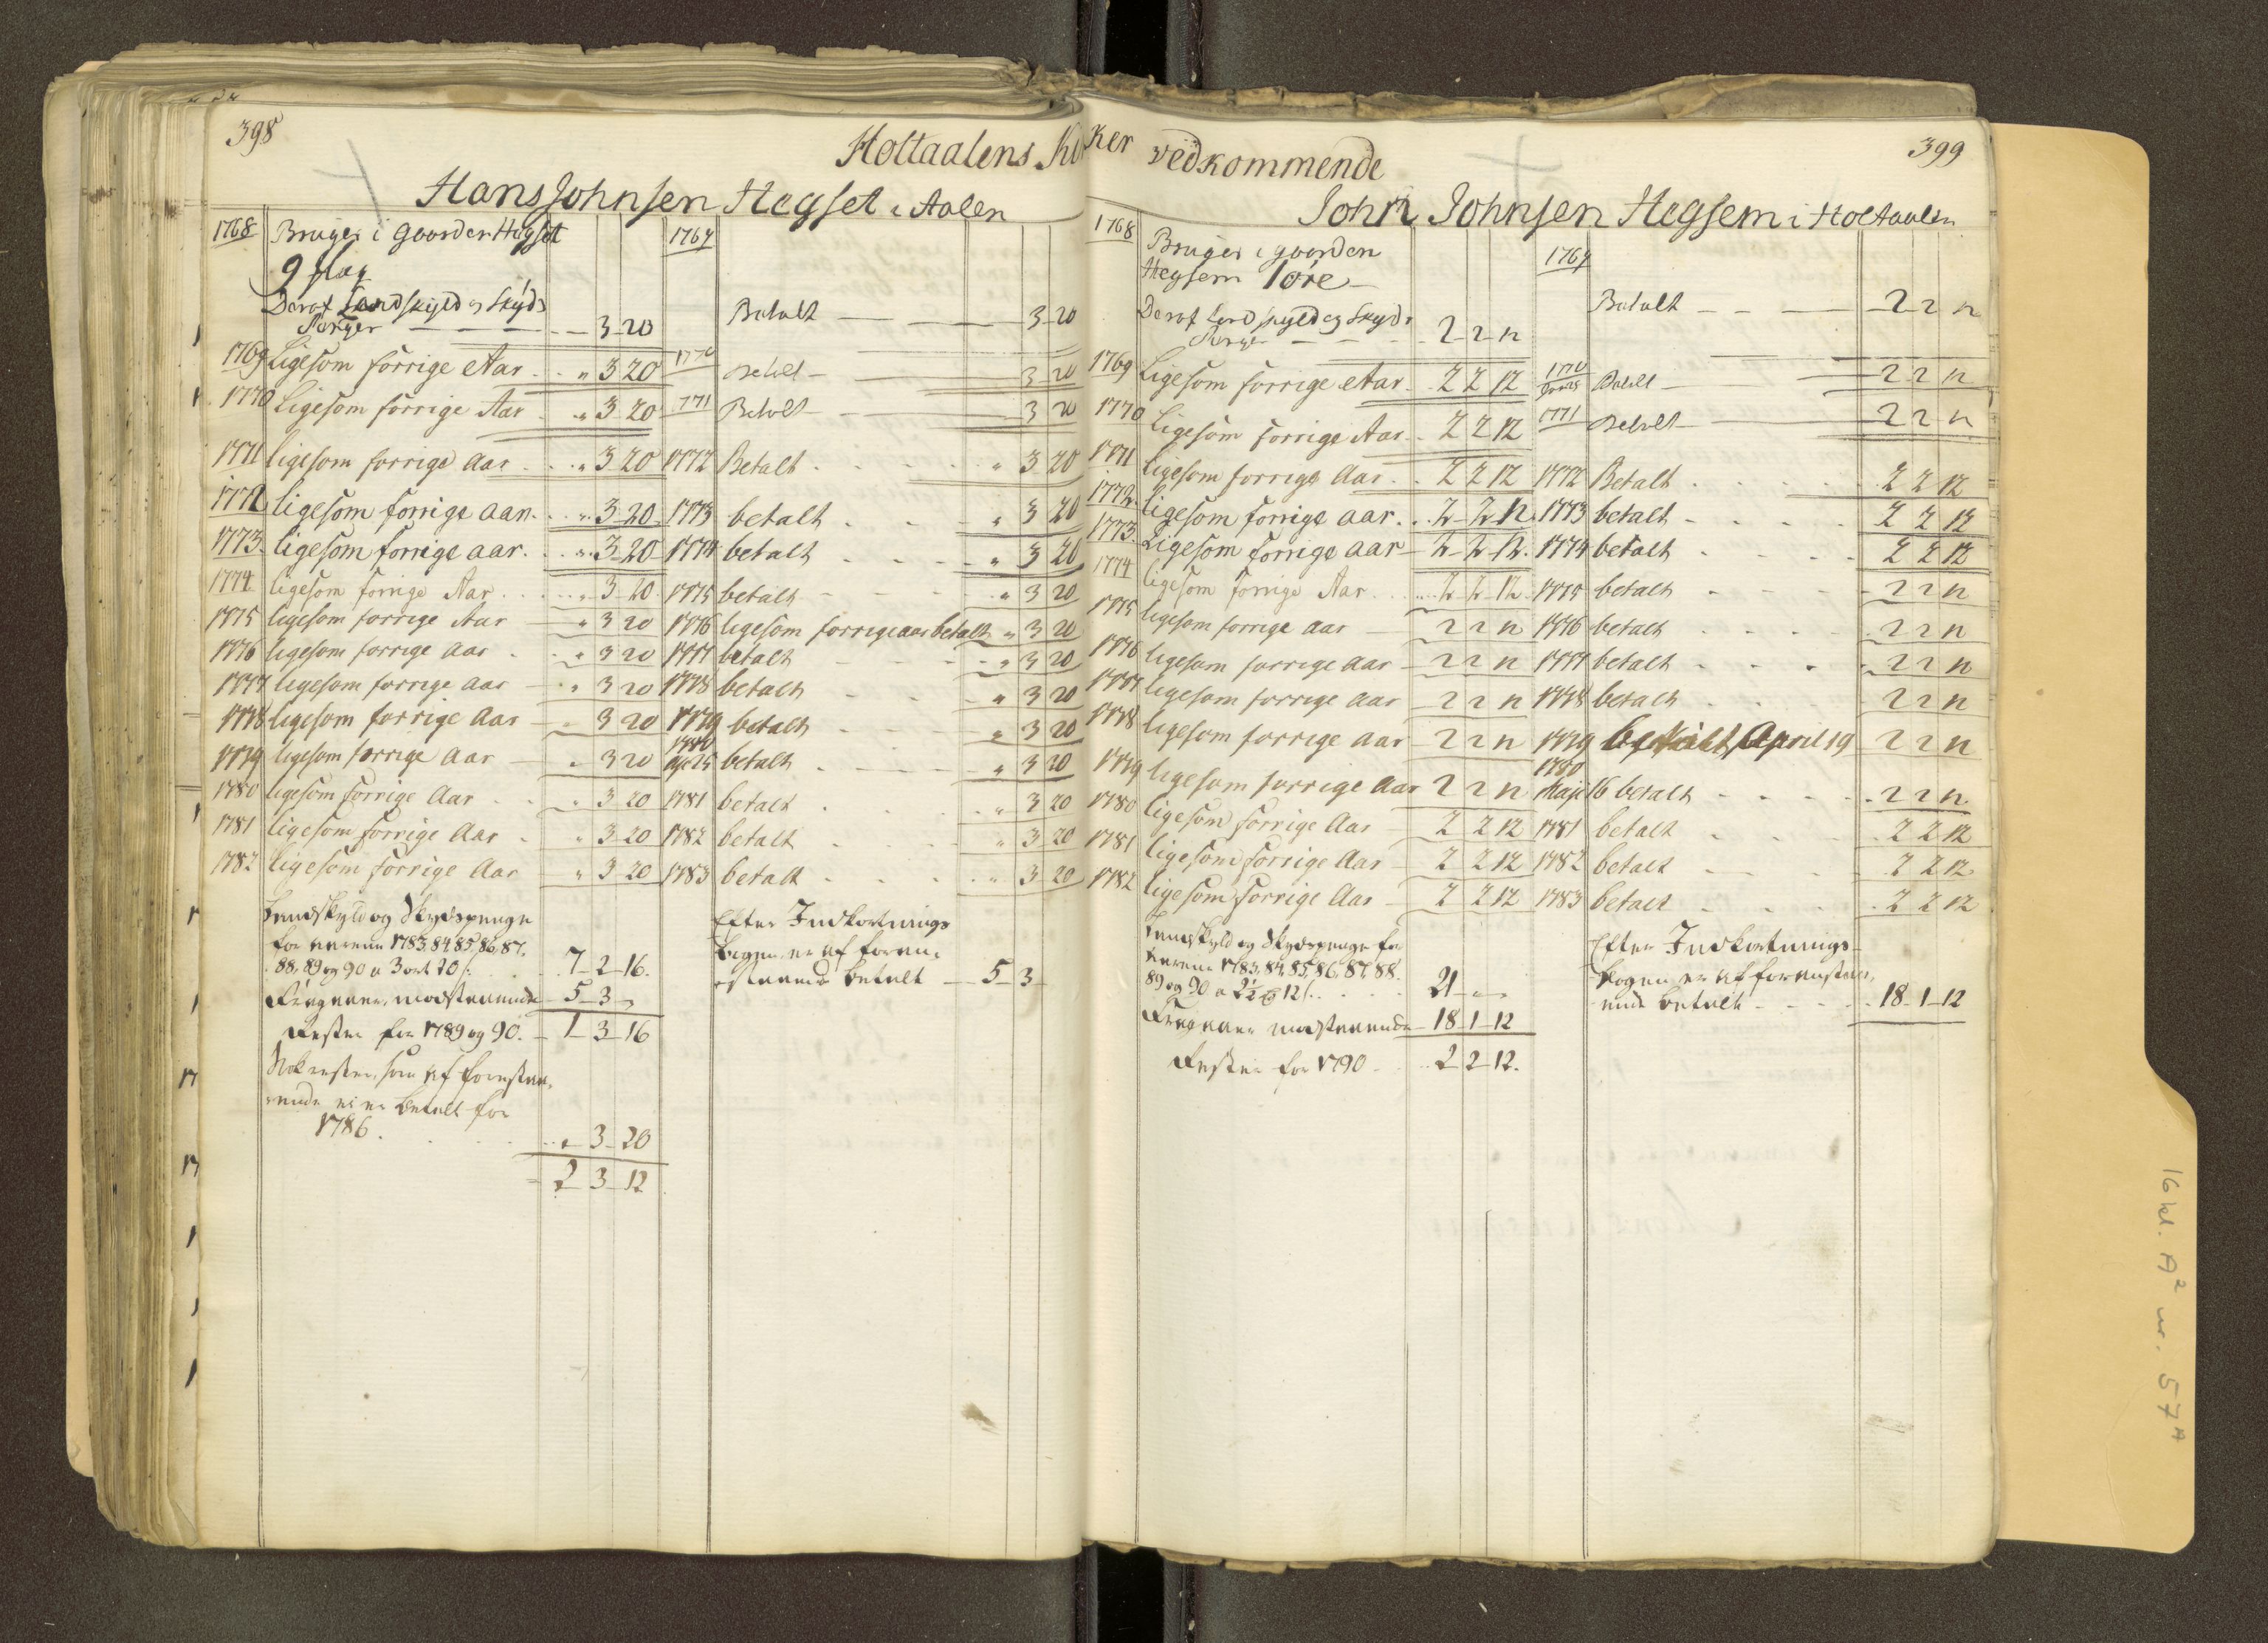 398
Holtaalens Kir
Hans Johnsen Hegset i Aalen
1768 Bruger i gaarden Hegset
9 slag
Deraf Landskyld og Skyds
Penger - 3 20
1769 Betalt - 3 20
1769 Ligesom forrige Aar " 3 20 1770 Betalt - 3 20
1770 Ligesom forrige Aar " 3 20 1771 Betalt - 3 20
1771 ligesom forrige Aar " 3 20 1772 Betalt " 3 20
1772 ligesom forrige Aar " 3 20 1773 betalt " 3 20
1773 ligesom forrige aar " 3 20 1774 betalt " 3 20
1774 ligesom forrige Aar " 3 20 1775 betalt " 3 20
1775 ligesom forrige Aar " 3 20 1776 ligesom forrige aar betalt " 3 20
1776 ligesom forrige Aar " 3 20 1777 betalt " 3 20
1777 ligesom forrige Aar " 3 20 1778 betalt " 3 20
1778 ligesom forrige Aar " 3 20 1779 betalt " 3 20
1779 ligesom forrige Aar " 3 20 1780 25 betalt " 3 20
1780 ligesom forrige Aar " 3 20 1781 betalt " 3 20
1781 ligesom forrige Aar " 3 20 1782 betalt " 3 20
1782 ligesom forrige Aar " 3 20 1783 betalt " 3 20
Landskyld og Skydspenge
for aarene 1783, 84, 85, 86, 87,
88, 89 og 90 a 3 ort 20 s. 7 2 16.
Fragaaer modstaaende 5 3 "
Rester for 1789 og 90. 1 3 16
Nok rester, som af forestaa-
ende ei er betalt for
1786. " 3 20
2 3 12
Efter Indkortnings
bogen er af foran-
staaende betalt 5 3
ker vedkommende
399
John Johnsen Hegsem i Holtaalen
1768 Bruger i gaarden
Hegsem 1 øre
Deraf Landskyld og Skyds
Penger 2 2 12
1769 Betalt - 2 2 12
1769 Ligesom forrige Aar 2 2 12 1770 Betalt 2 2 12
1770 Ligesom forrige Aar 2 2 12 1771 Betalt 2 2 12
1771 ligesom forrige Aar 2 2 12 1772 Betalt 2 2 12
1772 ligesom forrige aar 2 2 12 1773 betalt 2 2 12
1773 Ligesom forrige aar 2 2 12 1774 betalt 2 2 12
1774 ligesom forrige Aar 2 2 12 1775 betalt 2 2 12
1775 ligesom forrige aar 2 2 12 1776 betalt 2 2 12
1776 ligesom forrige Aar 2 2 12 1777 betalt 2 2 12
1777 ligesom forrige Aar 2 2 12 1778 betalt 2 2 12
1778 ligesom forrige Aar 2 2 12 1779 betalt April 19 2 2 12
1779 ligesom forrige Aar 2 2 12 1780 Maji 16 betalt 2 2 12
1780 ligesom forrige Aar 2 2 12 1781 betalt 2 2 12
1781 ligesom forrige Aar 2 2 12 1782 betalt 2 2 12
1782 ligesom forrige Aar 2 2 12 1783 betalt 2 2 12
Landskyld og Skydspenge for
aarene 1783, 84, 85, 86, 87, 88.
89 og 90 a 2 12 s. 21 " "
Fragaaer modstaaende 18 1 12
Rester for 1790 2 2 12.
Efter Indkortnings-
bogen er af foranstaa-
ende betalt 18 1 12
16 kl. A² nr. 57ᴬ